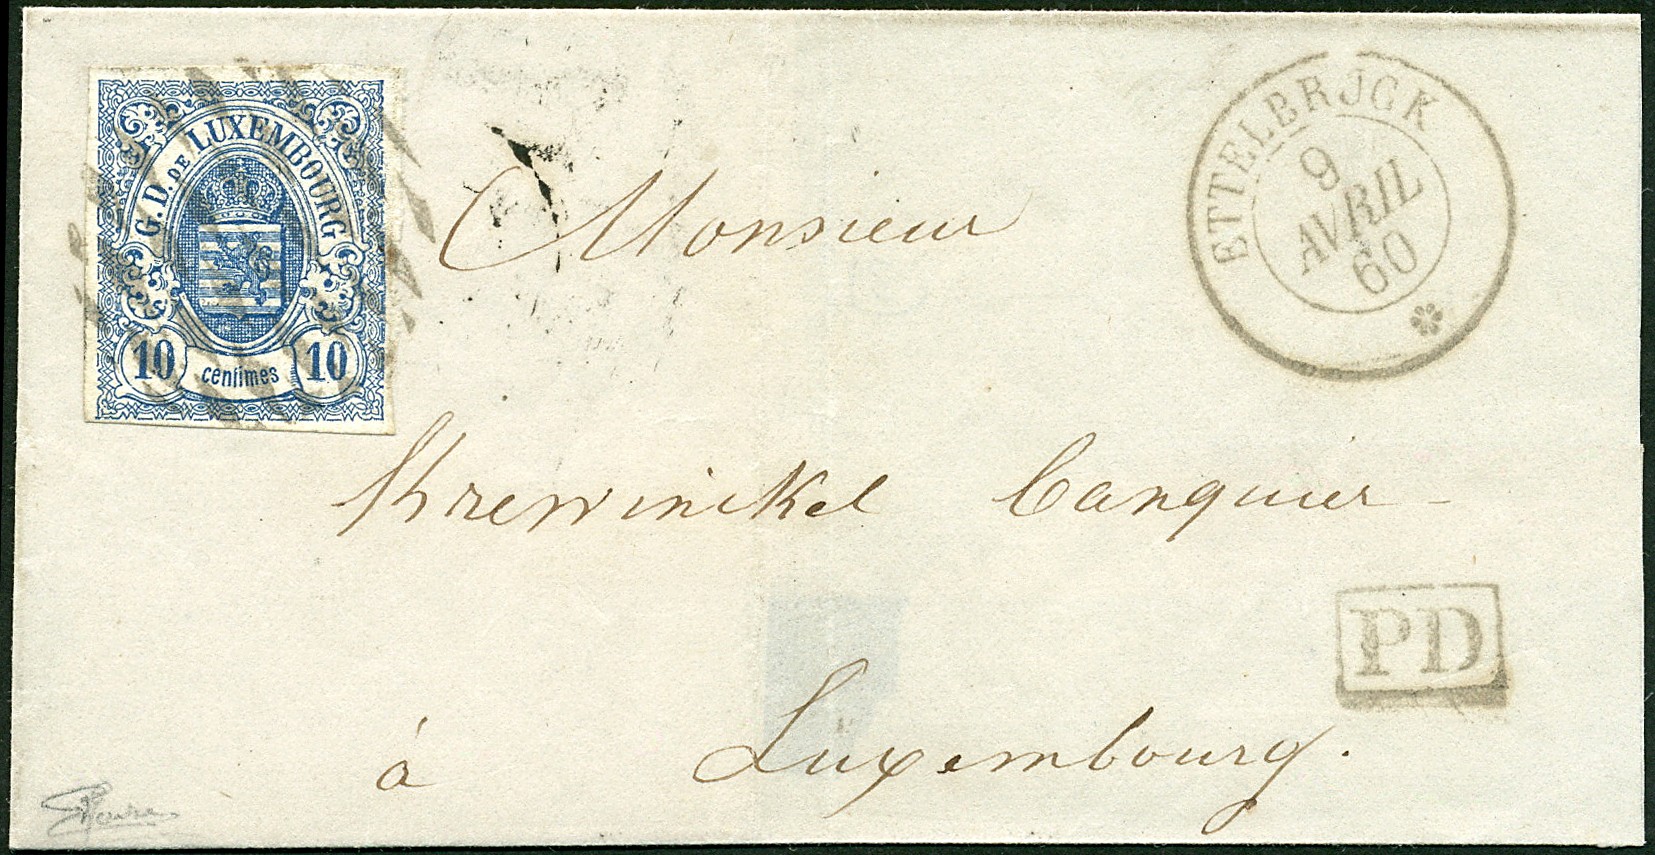 G.D. DE LUXEMBOURG
10 centimes 10
ETTELBRJCK
9
AVRIL
60
Monsieur
Krewinckel banquier
PD
à Luxembourg.